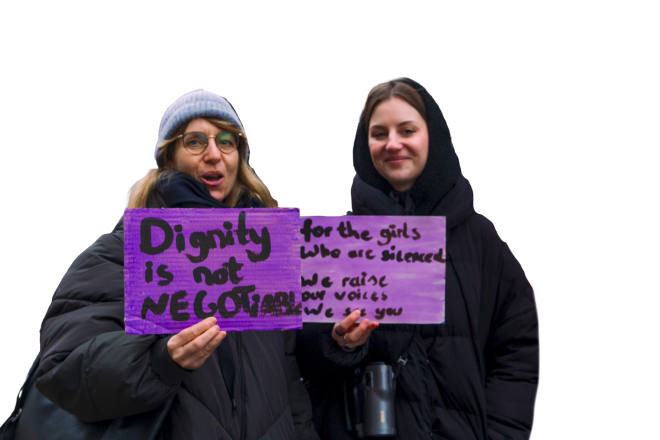 Dignity
is not
NEGOTIABLE
for the girls
who are silenced
We raise
our voices
We see you